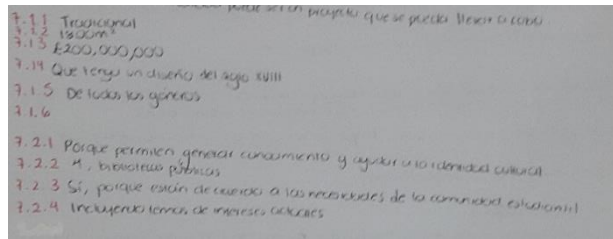 puede ser un proyecto que se pueda llevar a cabo
7.1.1 Tradicional
7.1.2 1800m²
7.1.3 £200,000,000
7.1.4 Que tenga un diseño del siglo XVIII
7.1.5 De todos los géneros
7.1.6
7.2.1 Porque permiten generar conocimiento y ayudar a la identidad cultural
7.2.2 4, bibliotecas públicas
7.2.3 Sí, porque están de acuerdo a las necesidades de la comunidad estudiantil
7.2.4 Incluyendo temas de intereses actuales